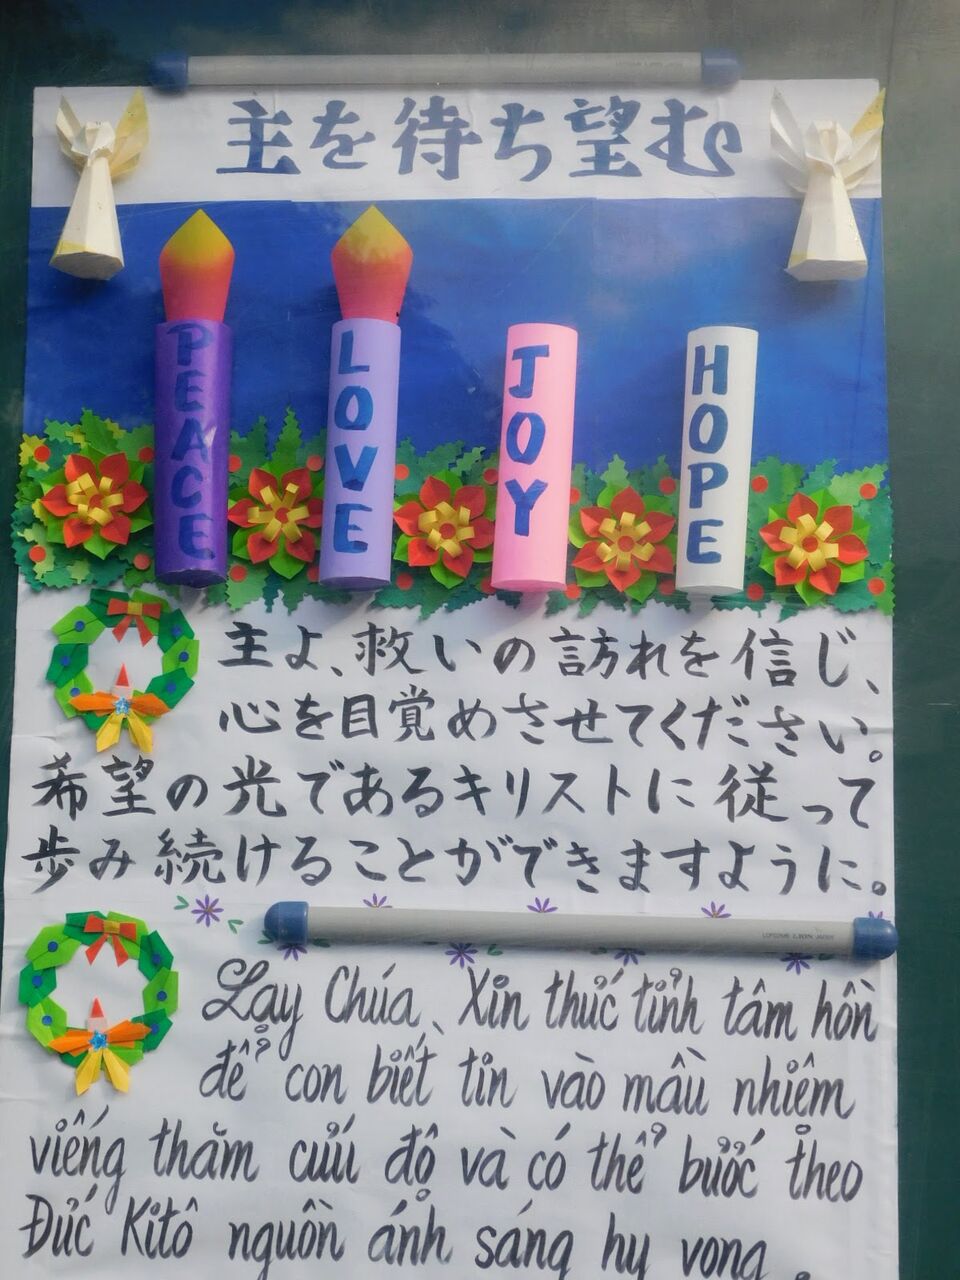 主を待ち望む
PEACE
LOVE
JOY
HOPE
主よ、救いの訪れを信じ、
心を目覚めさせてください。
希望の光であるキリストに従って
歩み続けることができますように。
Lạy Chúa、Xin thức tỉnh tâm hồn
để con biết tin vào mầu nhiệm
viếng thăm cứu độ và có thể bước theo
Đức Kitô nguồn ánh sáng hy vọng.